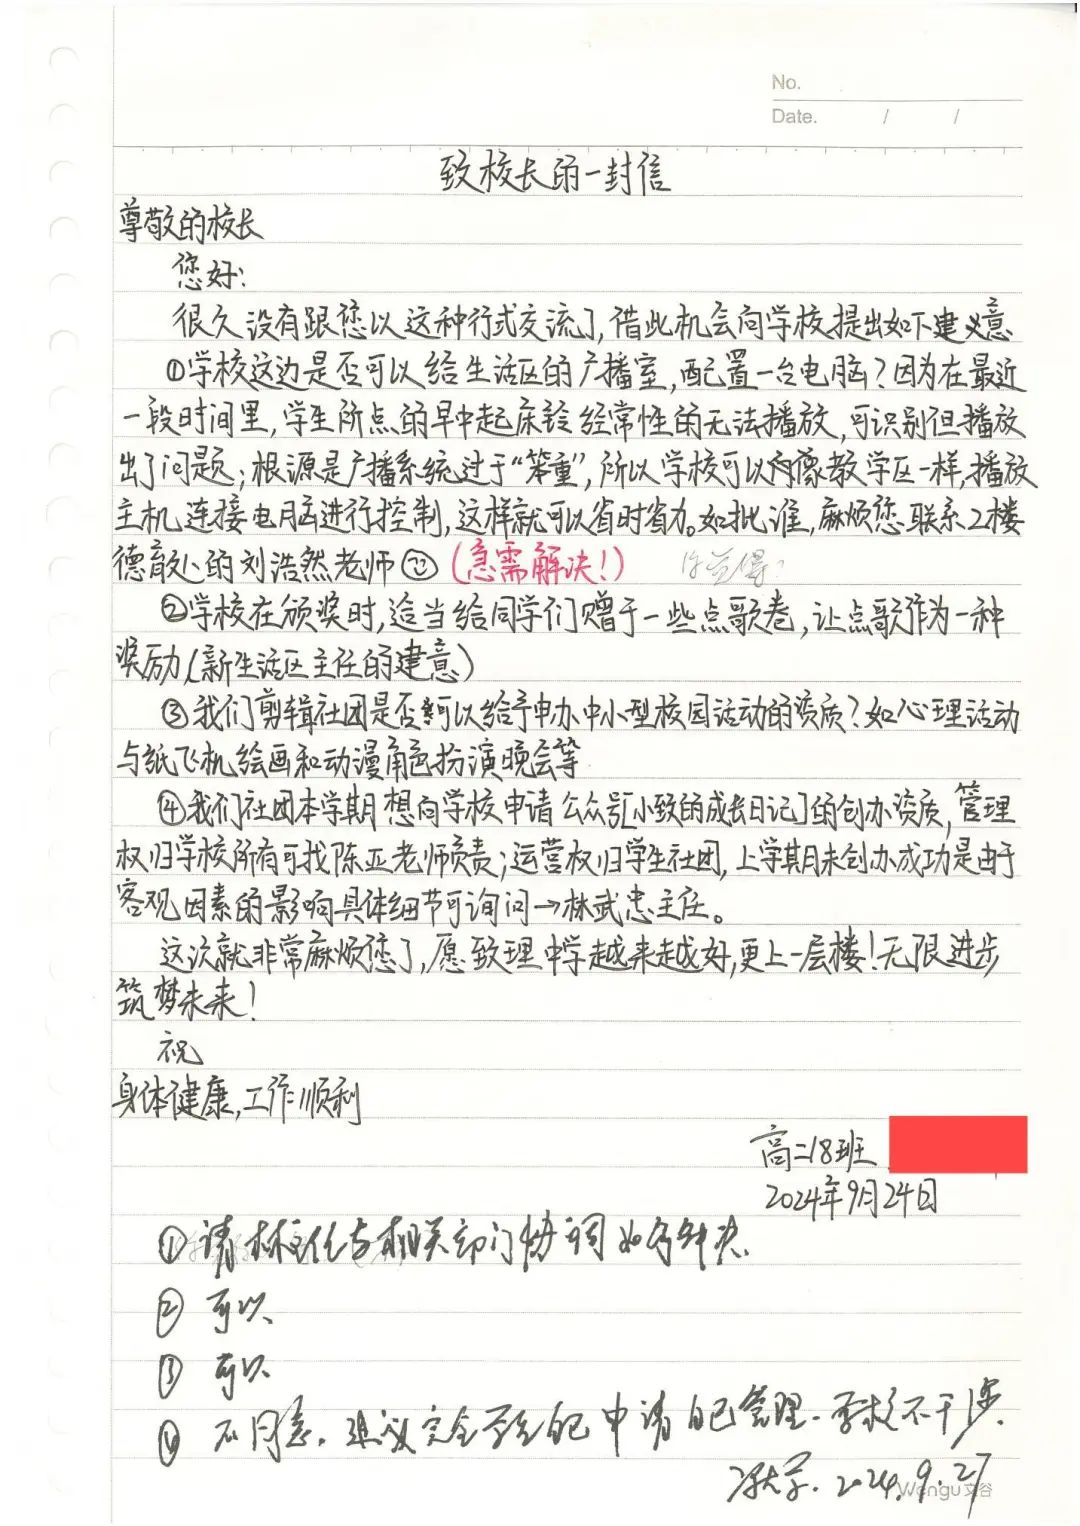 No.
Date. / /
致校长的一封信
尊敬的校长
您好:
很久没有跟您以这种行式交流了,借此机会向学校提出如下建义意
①学校这边是否可以给生活区的广播室,配置一台电脑?因为在最近
一段时间里,学生所点的早中起床铃经常性的无法播放,可识别但播放
出了问题;根源是广播系统过于“笨重”,所以学校可以向像教学区一样,播放
主机连接电脑进行控制,这样就可以省时省力。如批准,麻烦您联系2楼
德育处的刘浩然老师 (急需解决!)
②学校在颁奖时,适当给同学们赠于一些点歌卷,让点歌作为一种
奖励(新生活区主任的建意)
③我们剪辑社团是否可以给予申办中小型校园活动的资质?如心理活动
与纸飞机绘画和动漫角色扮演晚会等
④我们社团本学期想向学校申请公众号[小致的成长日记]的创办资质,管理
权归学校所有可找陈亚老师负责;运营权归学生社团,上学期未创办成功是由于
客观因素的影响具体细节可询问→林武忠主任。
这次就非常麻烦您了,愿致理中学越来越好,更上一层楼!无限进步
筑梦未来!
祝
身体健康,工作顺利
高二18班
2024年9月24日
①请林主任与相关部门协调如何解决.
②可以
③可以
④不同意.建议完全学生自己申请自己管理.学校不干涉.
2024.9.27
Wengu文谷